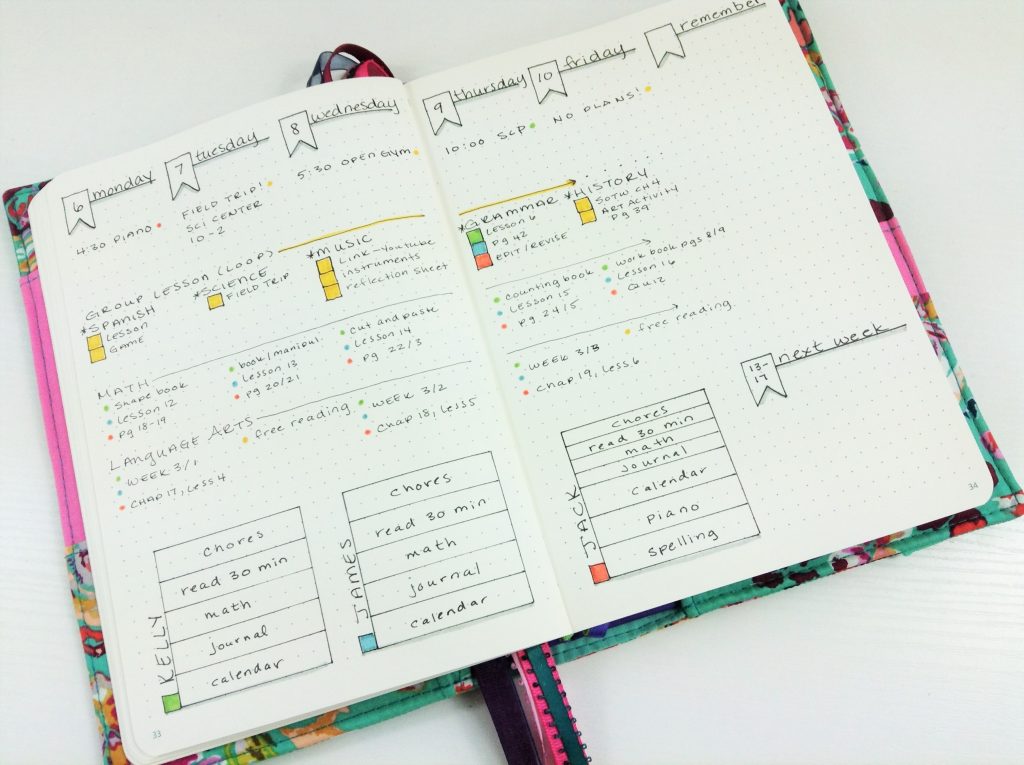 6 monday
7 tuesday
8 wednesday
4:30 PIANO
FIELD TRIP!
SCI CENTER
10-2
5:30 OPEN GYM
GROUP LESSON (LOOP)
*SPANISH
LESSON
GAME
*SCIENCE
FIELD TRIP
*MUSIC
Link-Youtube
instruments
reflection sheet
MATH
shape book
Lesson 12
pg 18-19
book/manipul.
Lesson 13
pg 20/21
cut and paste
Lesson 14
pg 22/3
LANGUAGE ARTS
WEEK 3/1
CHAP 17, LESS 4
free reading
WEEK 3/2
CHAP 18, LESS 5
KELLY
chores
read 30 min
math
journal
calendar
JAMES
chores
read 30 min
math
journal
calendar
33
9 thursday
10 friday
remember
10:00 SCP
NO PLANS!
*GRAMMAR
Lesson 6
pg 42
EDIT/REVISE
*HISTORY
SOTW CH 4
ART ACTIVITY
pg 39
counting book
Lesson 15
pg. 24/5
work book pgs 8/9
Lesson 16
Quiz
WEEK 3/3
CHAP 19, LESS 6
free reading
13-
17
next week
JACK
chores
read 30 min
math
journal
calendar
piano
spelling
34